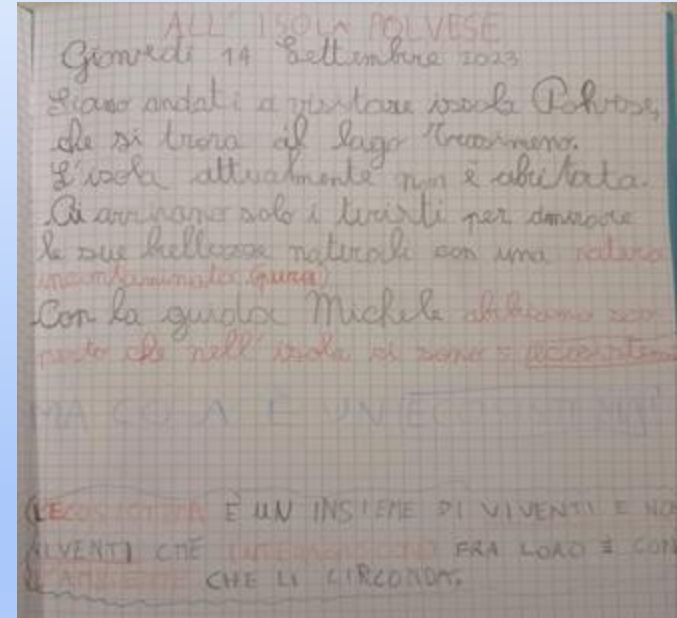 ALL'ISOLA POLVESE
Giovedì 14 Settembre 2023
Siamo andati a visitare isola Polvese,
che si trova al lago Trasimeno.
L'isola attualmente non è abitata.
Ci arrivano solo i turisti per
le sue bellezze naturali con una natura
incontaminata (pura)
Con la guida Michele abbiamo sco
perto che nell'isola ci sono
MA COSA È UN ECOSISTEMA?
L'ECOSISTEMA È UN INSIEME DI VIVENTI E NON
VIVENTI CHE FRA LORO E CON
L'AMBIENTE CHE LI CIRCONDA.